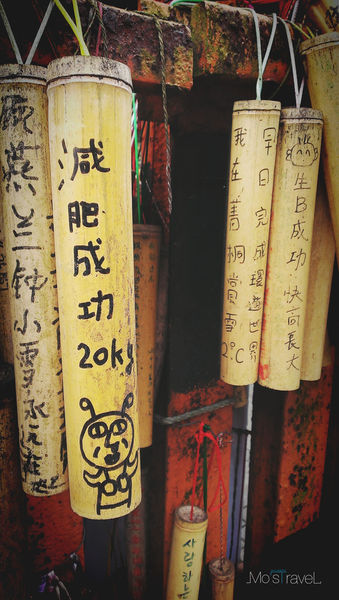 顾燕兰钟小雪永远在
減肥成功
20kg
我在菁桐賞雪2°C
宇日完成環遊世界
生B成功.快高長大
사랑하는
Mo'sTraveL